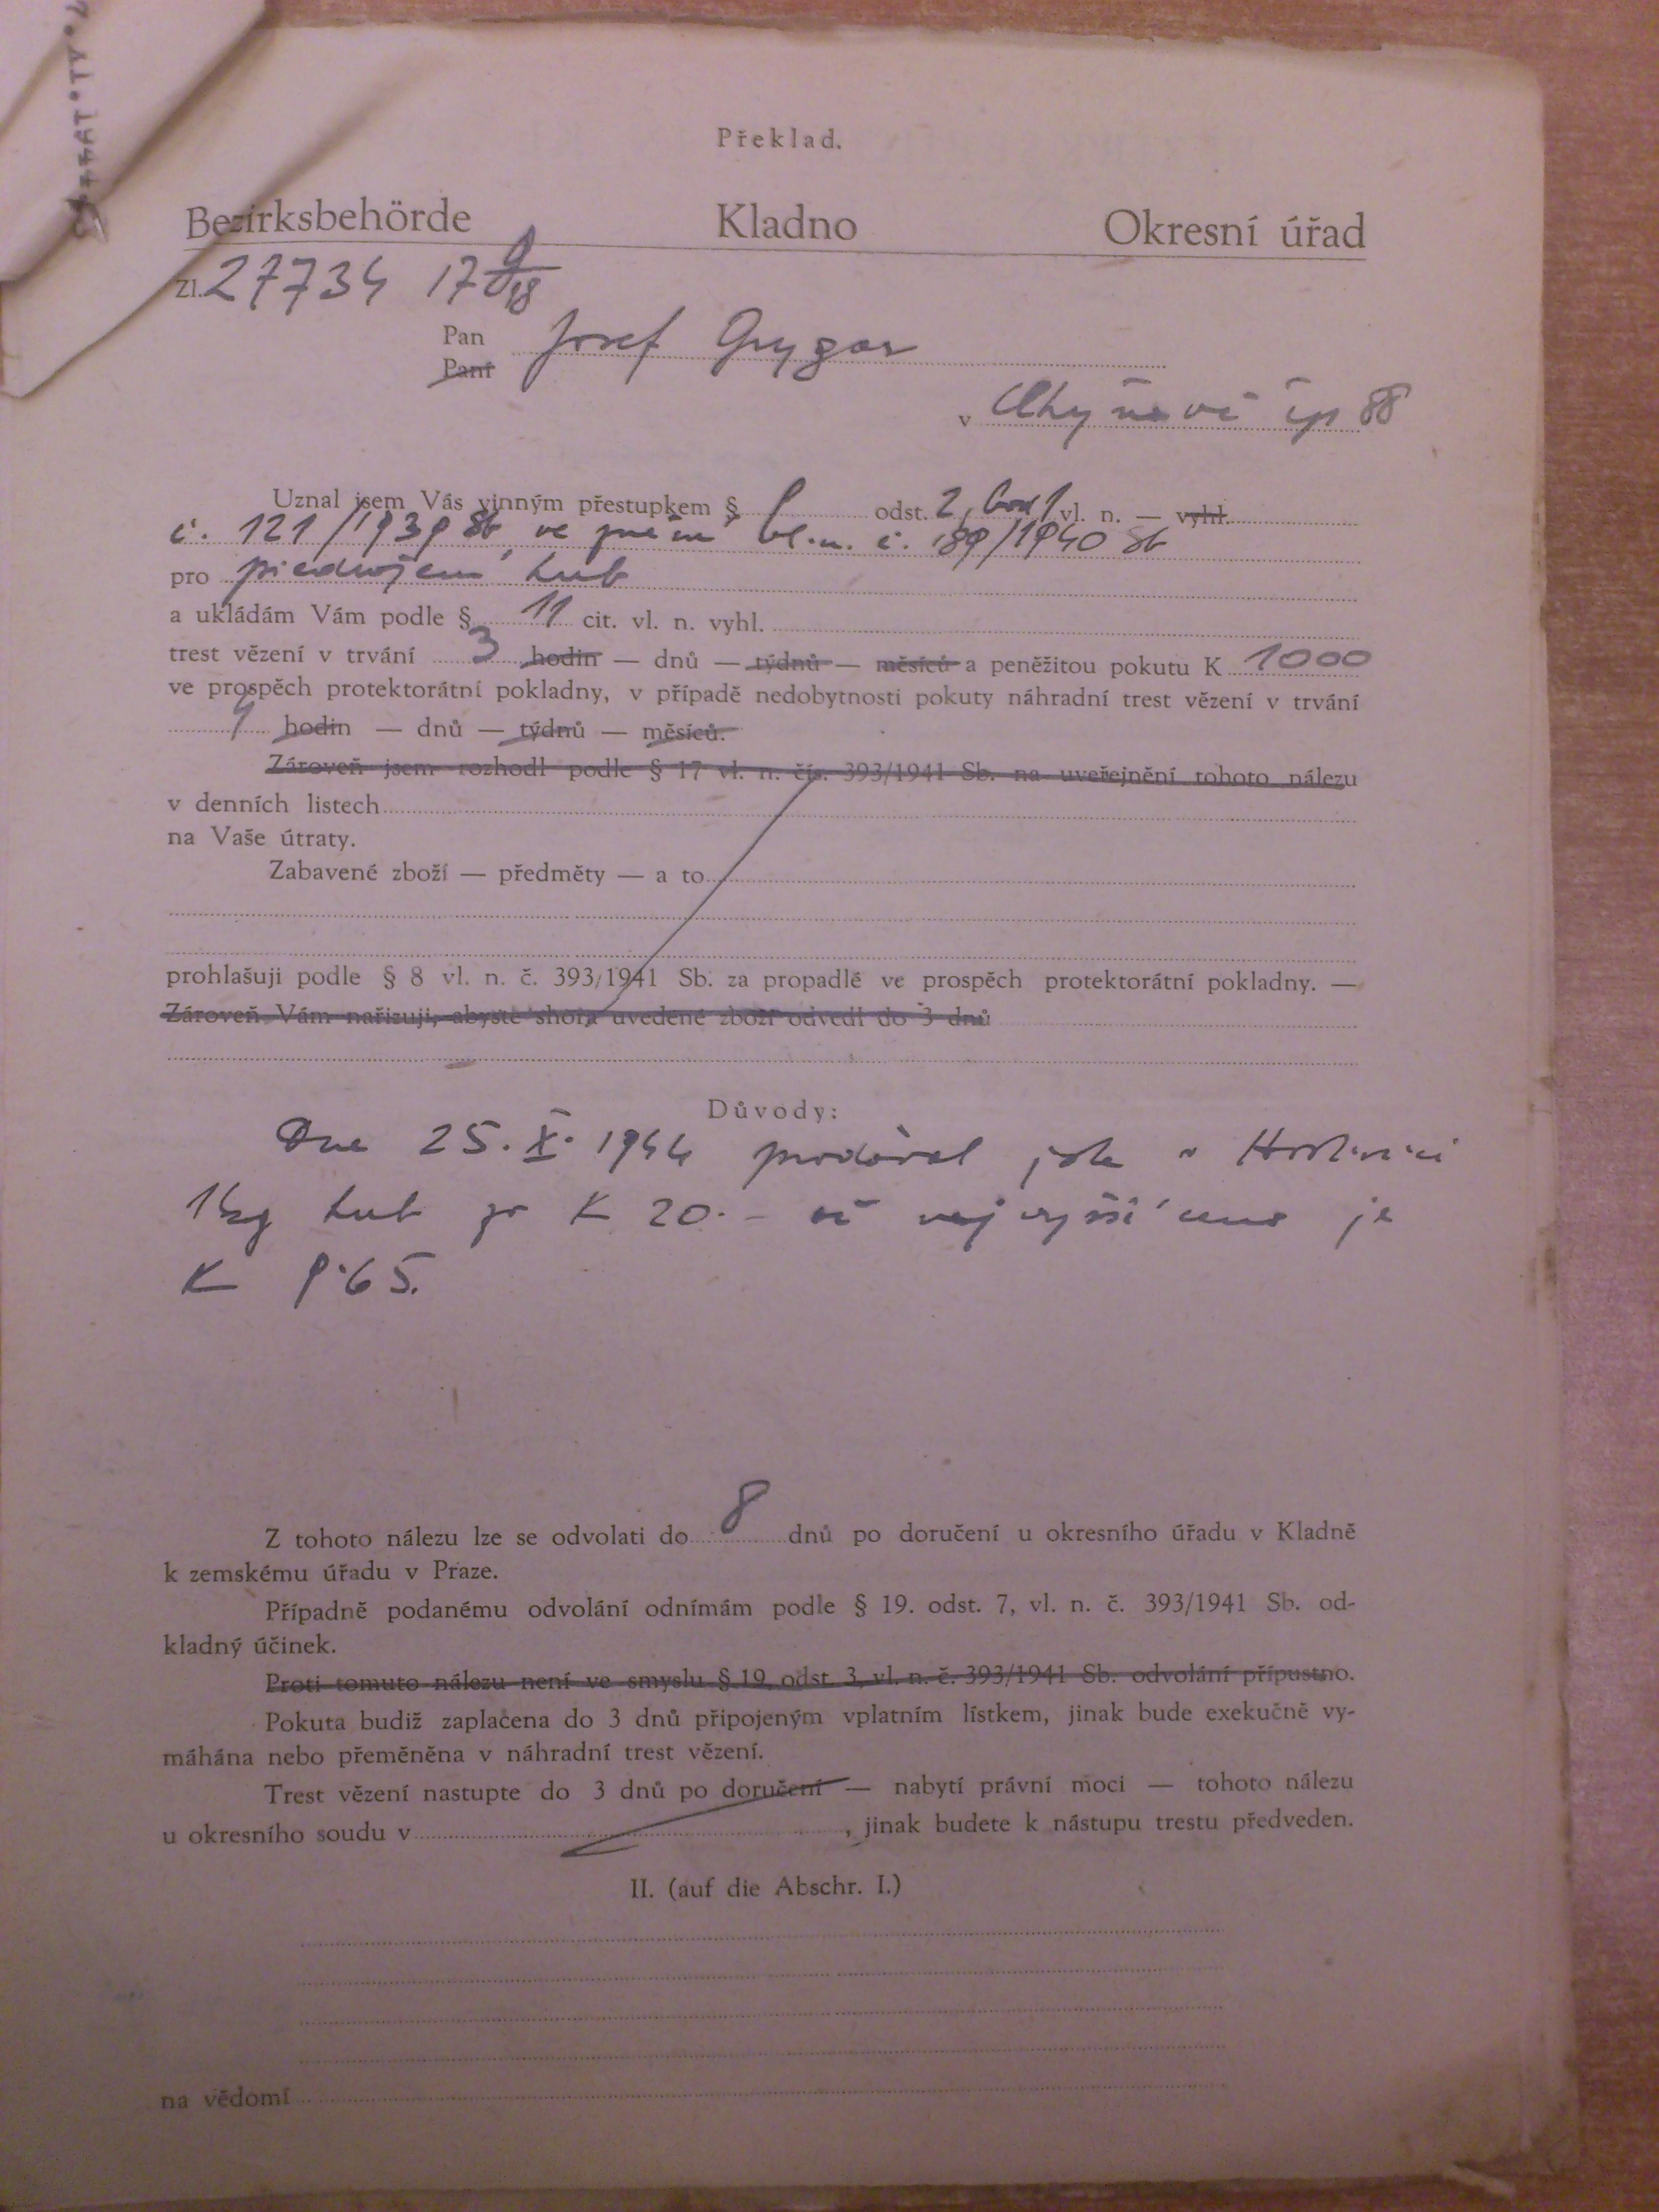 Překlad.
Bezirksbehörde Kladno Okresní úřad
Zl. 27734 17
Pan Josef Grygar
Paní
v čp 88
Uznal jsem Vás vinným přestupkem § 9 odst. 2, bod 1 vl. n. — vyhl.
č. 121/1939 Sb. ve znění vl. n. č. 189/1940 Sb
pro předražení hub
a ukládám Vám podle § 11 cit. vl. n. vyhl.
trest vězení v trvání 3 hodin — dnů — týdnů — měsíců a peněžitou pokutu K 1000
ve prospěch protektorátní pokladny, v případě nedobytnosti pokuty náhradní trest vězení v trvání
hodin — dnů — týdnů — měsíců.
Zároveň jsem rozhodl podle § 17 vl. n. čís. 393/1941 Sb. na uveřejnění tohoto nálezu
v denních listech
na Vaše útraty.
Zabavené zboží — předměty — a to
prohlašuji podle § 8 vl. n. č. 393/1941 Sb. za propadlé ve prospěch protektorátní pokladny. —
Zároveň Vám nařizuji, abyste shora uvedené zboží odvedl do 3 dnů
Důvody:
Dne 25. X. 1944 prodával jste v
1 kg hub za K 20.– ač nejvyšší cena je
K 9·65.
Z tohoto nálezu lze se odvolati do 8 dnů po doručení u okresního úřadu v Kladně
k zemskému úřadu v Praze.
Případně podanému odvolání odnímám podle § 19. odst. 7, vl. n. č. 393/1941 Sb. od-
kladný účinek.
Proti tomuto nálezu není ve smyslu § 19, odst. 3, vl. n. č. 393/1941 Sb. odvolání přípustno.
Pokuta budiž zaplacena do 3 dnů připojeným vplatním lístkem, jinak bude exekučně vy-
máhána nebo přeměněna v náhradní trest vězení.
Trest vězení nastupte do 3 dnů po doručení — nabytí právní moci — tohoto nálezu
u okresního soudu v , jinak budete k nástupu trestu předveden.
II. (auf die Abschr. I.)
na vědomí